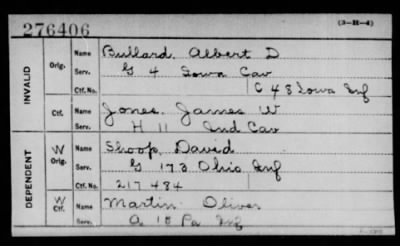 276406 (3-H-4)
INVALID Orig. Name Bullard, Albert D
Serv. G 4 Iowa Cav
Ctf. No. C 48 Iowa Inf
Ctf. Name Jones, James W
Serv. H 11 Ind Cav
DEPENDENT W Orig. Name Shoop, David
Serv. G 173 Ohio Inf
Ctf. No. 217484
W Ctf. Name Martin Oliver
Serv. A 18 Pa Inf